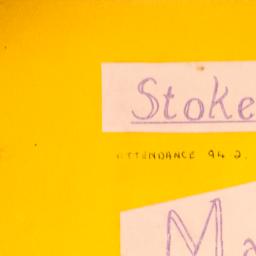 Stoke
ATTENDANCE 94 2.
Ma